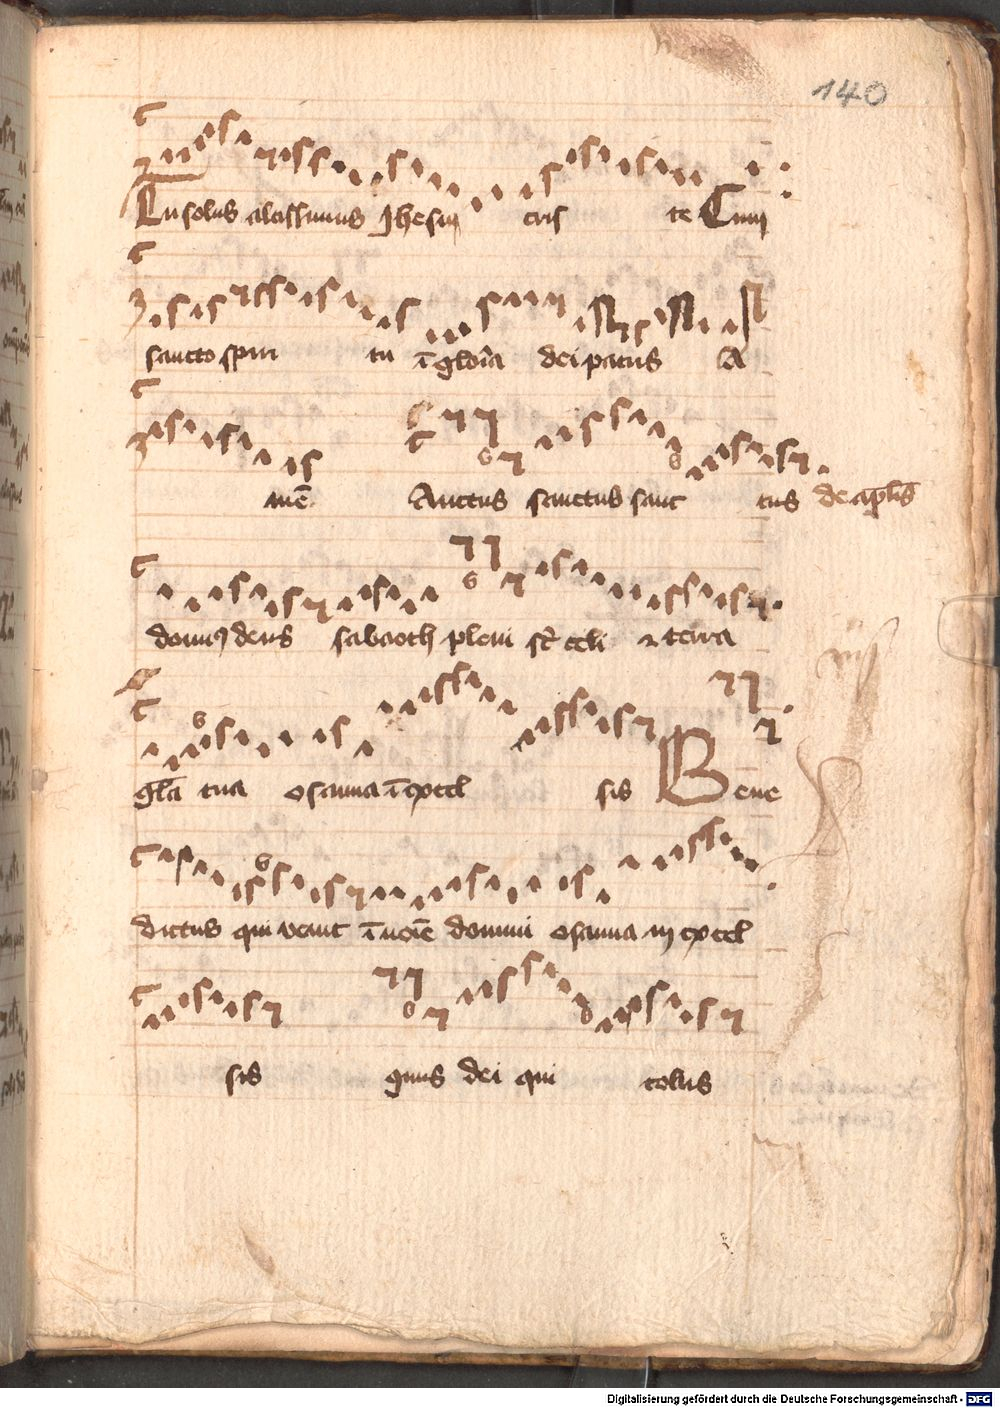 140
Tu solus altissimus Jhesu cris te Cum
sancto spiri tu ī glor̄ia dei patris A
mē Anctus sanctus sanc tus de aplīs
domin9 deus sabaoth pleni st̄ celi et terra
glā tua osanna ī excel sis Bene
dictus qui venit ī noīe domini osanna in excel
sis gnus dei qui tollis
Digitalisierung gefördert durch die Deutsche Forschungsgemeinschaft - DFG